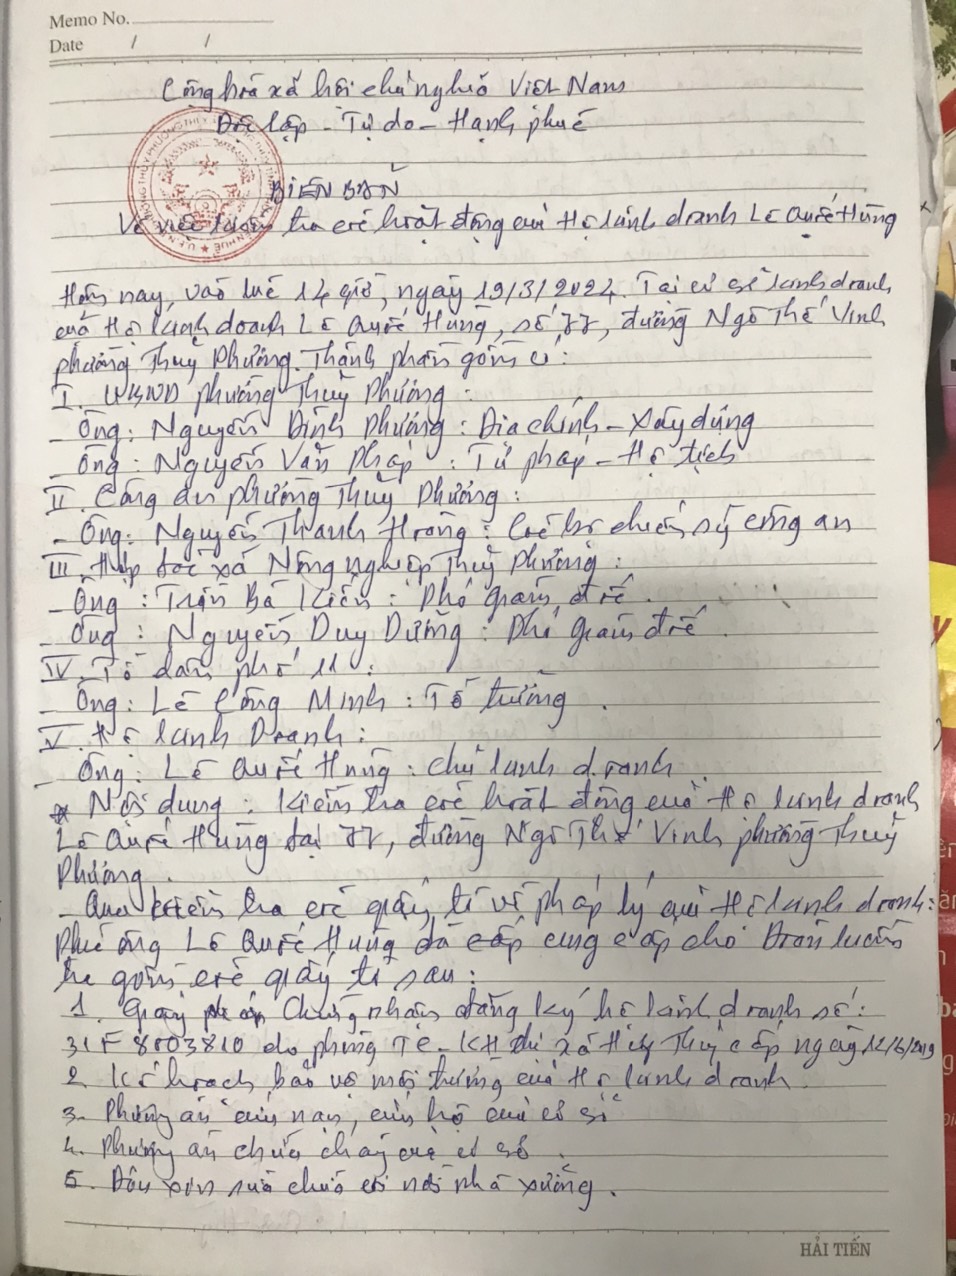 Memo No.
Date / /
Cộng hoà xã hội chủ nghĩa Việt Nam
Độc lập - Tự do - Hạnh phúc
BIÊN BẢN
Về việc kiểm tra các hoạt động của Hộ kinh doanh Lê Quốc Hùng
Hôm nay, vào lúc 14 giờ, ngày 19/3/2024. Tại cơ sở kinh doanh
của Hộ kinh doanh Lê Quốc Hùng, số 77, đường Ngô Thế Vinh
phường Thuỷ Phương. Thành phần gồm có:
I. UBND phường Thuỷ Phương:
- Ông: Nguyễn Đình Phương: Địa chính - Xây dựng
- Ông: Nguyễn Văn Pháp : Tư pháp - Hộ tịch
II. Công an phường Thuỷ Phương:
- Ông: Nguyễn Thanh Hoàng: Cán bộ chiến sỹ công an
III. Hợp tác xã Nông nghiệp Thuỷ Phương:
- Ông : Trần Bá Kiên : Phó giám đốc.
- Ông : Nguyễn Duy Dưỡng : Phó giám đốc.
IV. Tổ dân phố 11:
- Ông: Lê Công Minh : Tổ trưởng.
V. Hộ kinh Doanh:
- Ông: Lê Quốc Hùng: chủ kinh doanh.
* Nội dung: Kiểm tra các hoạt động của Hộ kinh doanh
Lê Quốc Hùng tại 77, đường Ngô Thế Vinh phường Thuỷ
Phương.
- Qua kiểm tra các giấy tờ về pháp lý của Hộ kinh doanh:
Phía ông Lê Quốc Hùng đã cung cấp cho Đoàn kiểm
tra gồm các giấy tờ sau:
1. Giấy Chứng nhận đăng ký hộ kinh doanh số:
31F8003810 do phòng TC-KH thị xã Hương Thuỷ cấp ngày 12/6/2019
2. Kế hoạch bảo vệ môi trường của Hộ kinh doanh.
3. Phương án cứu nạn, cứu hộ của cơ sở
4. Phương án chữa cháy của cơ sở.
5. Đơn xin sửa chữa cơi nới nhà xưởng.
HẢI TIẾN